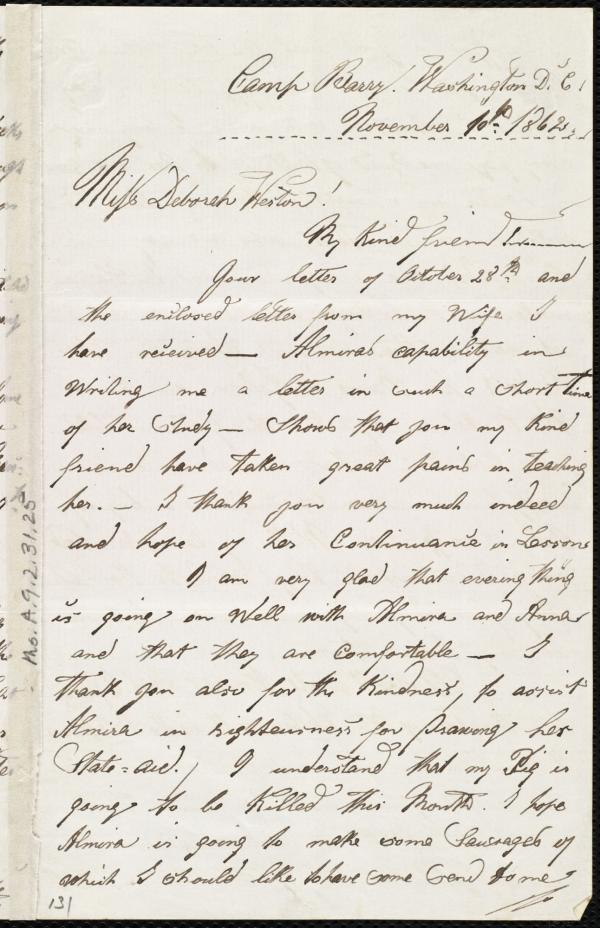 Camp Barry. Washington D. C.
November 10th 1862.
Miss Deborah Weston!
My Kind friend!
Your letter of October 28th and
the enclosed letter from my Wife I
have received — Almiras capability in
Writing me a letter in such a short time
of her study — Shows that you my Kind
friend have taken great pains in teaching
her. — I thank you very much indeed
and hope of her Continuance in Lessons
I am very glad that every thing
is going on Well with Almira and Anna
and that they are Comfortable — I
thank you also for the Kindness, to assist
Almira in righteusness for Drawing her
State=aid. I understand that my Pig is
going to be Killed this Month. I hope
Almira is going to make some Sausages of
which I should like to have some Send to me
131
Ms.A.9.2.31.25